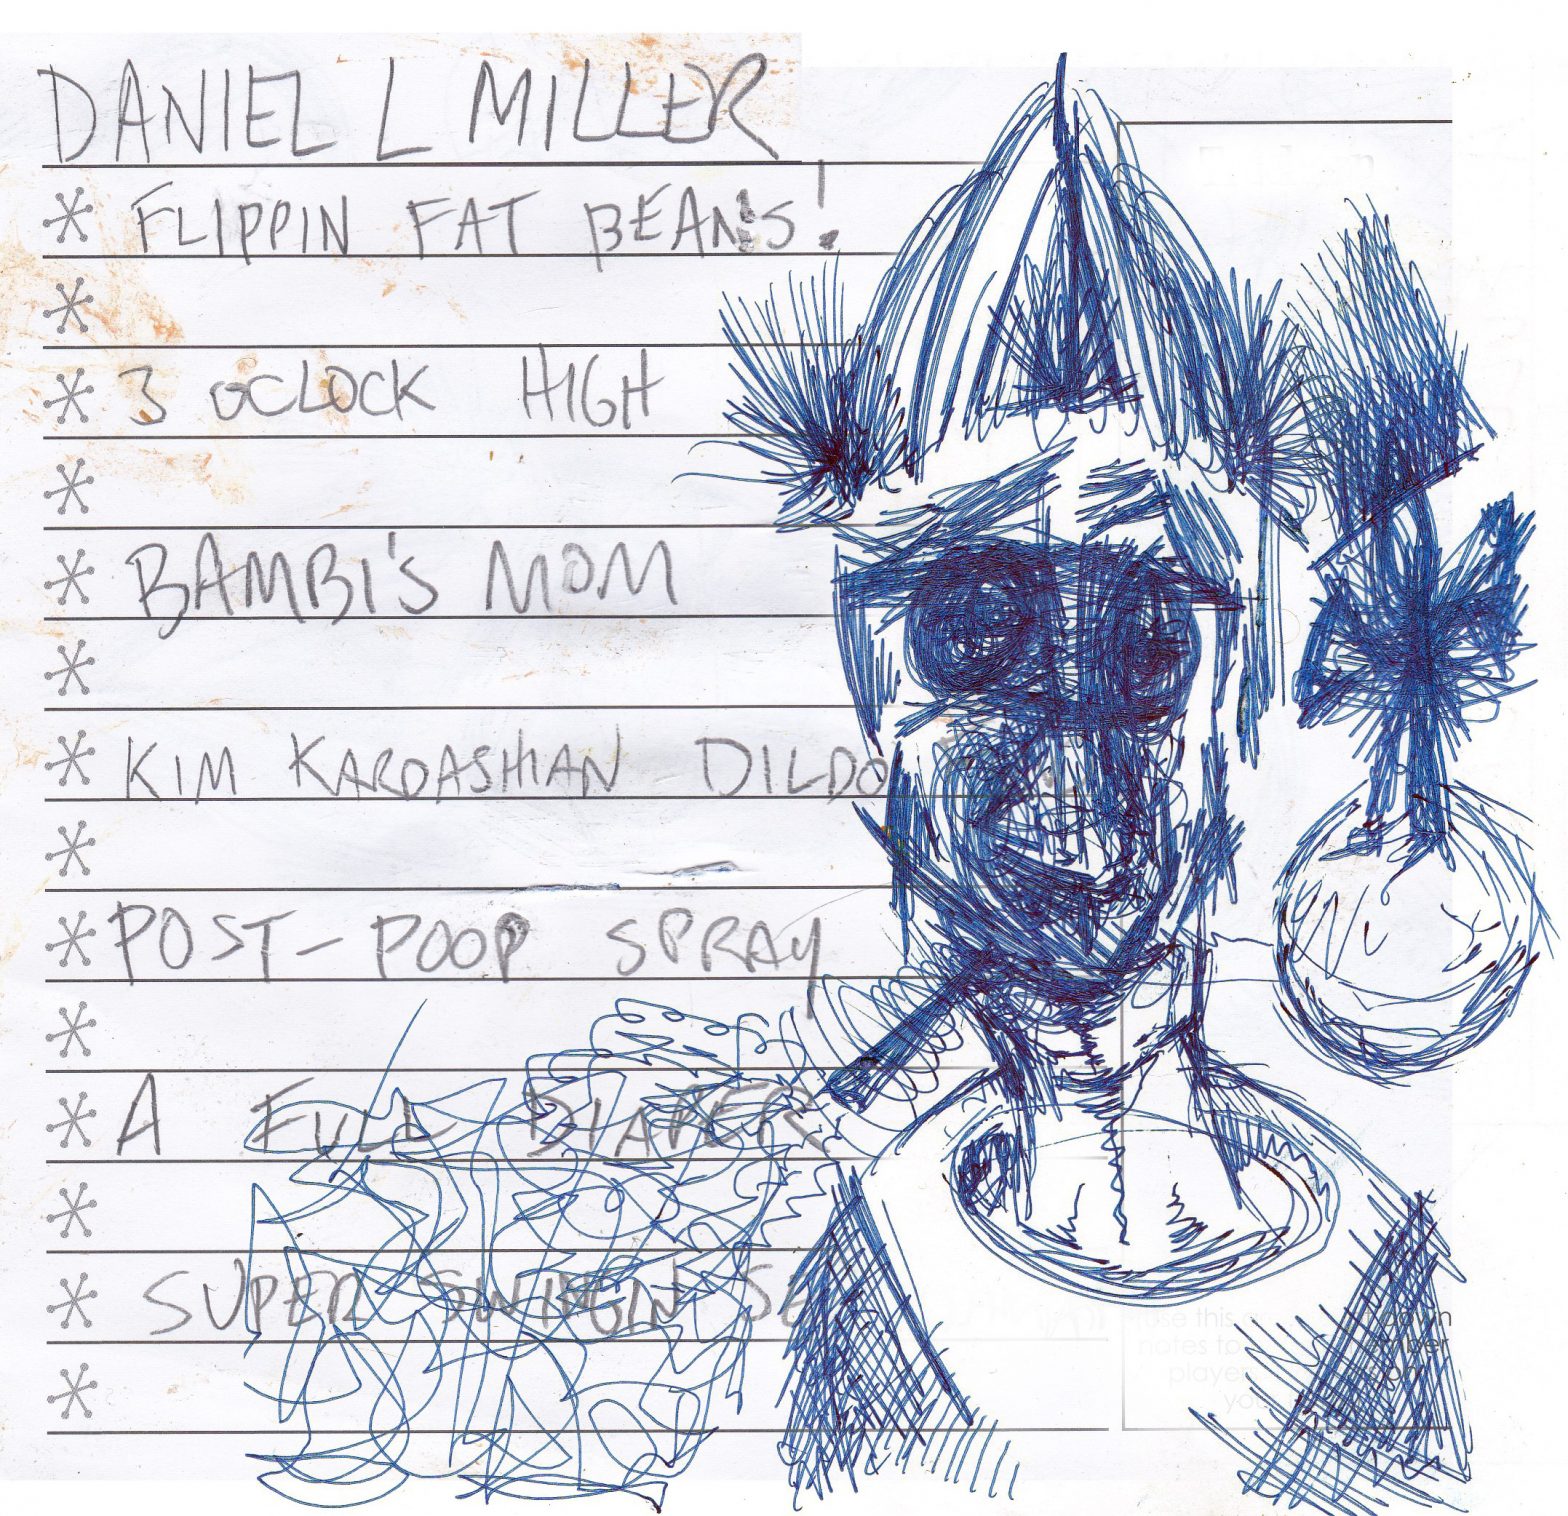 DANIEL L MILLER
FLIPPIN FAT BEANS!
3 OCLOCK HIGH
BAMBI'S MOM
KIM KARDASHIAN DILDO
POST-POOP SPRAY
A FULL DIAPER
SUPER SWINGIN
use this
notes to
player
down